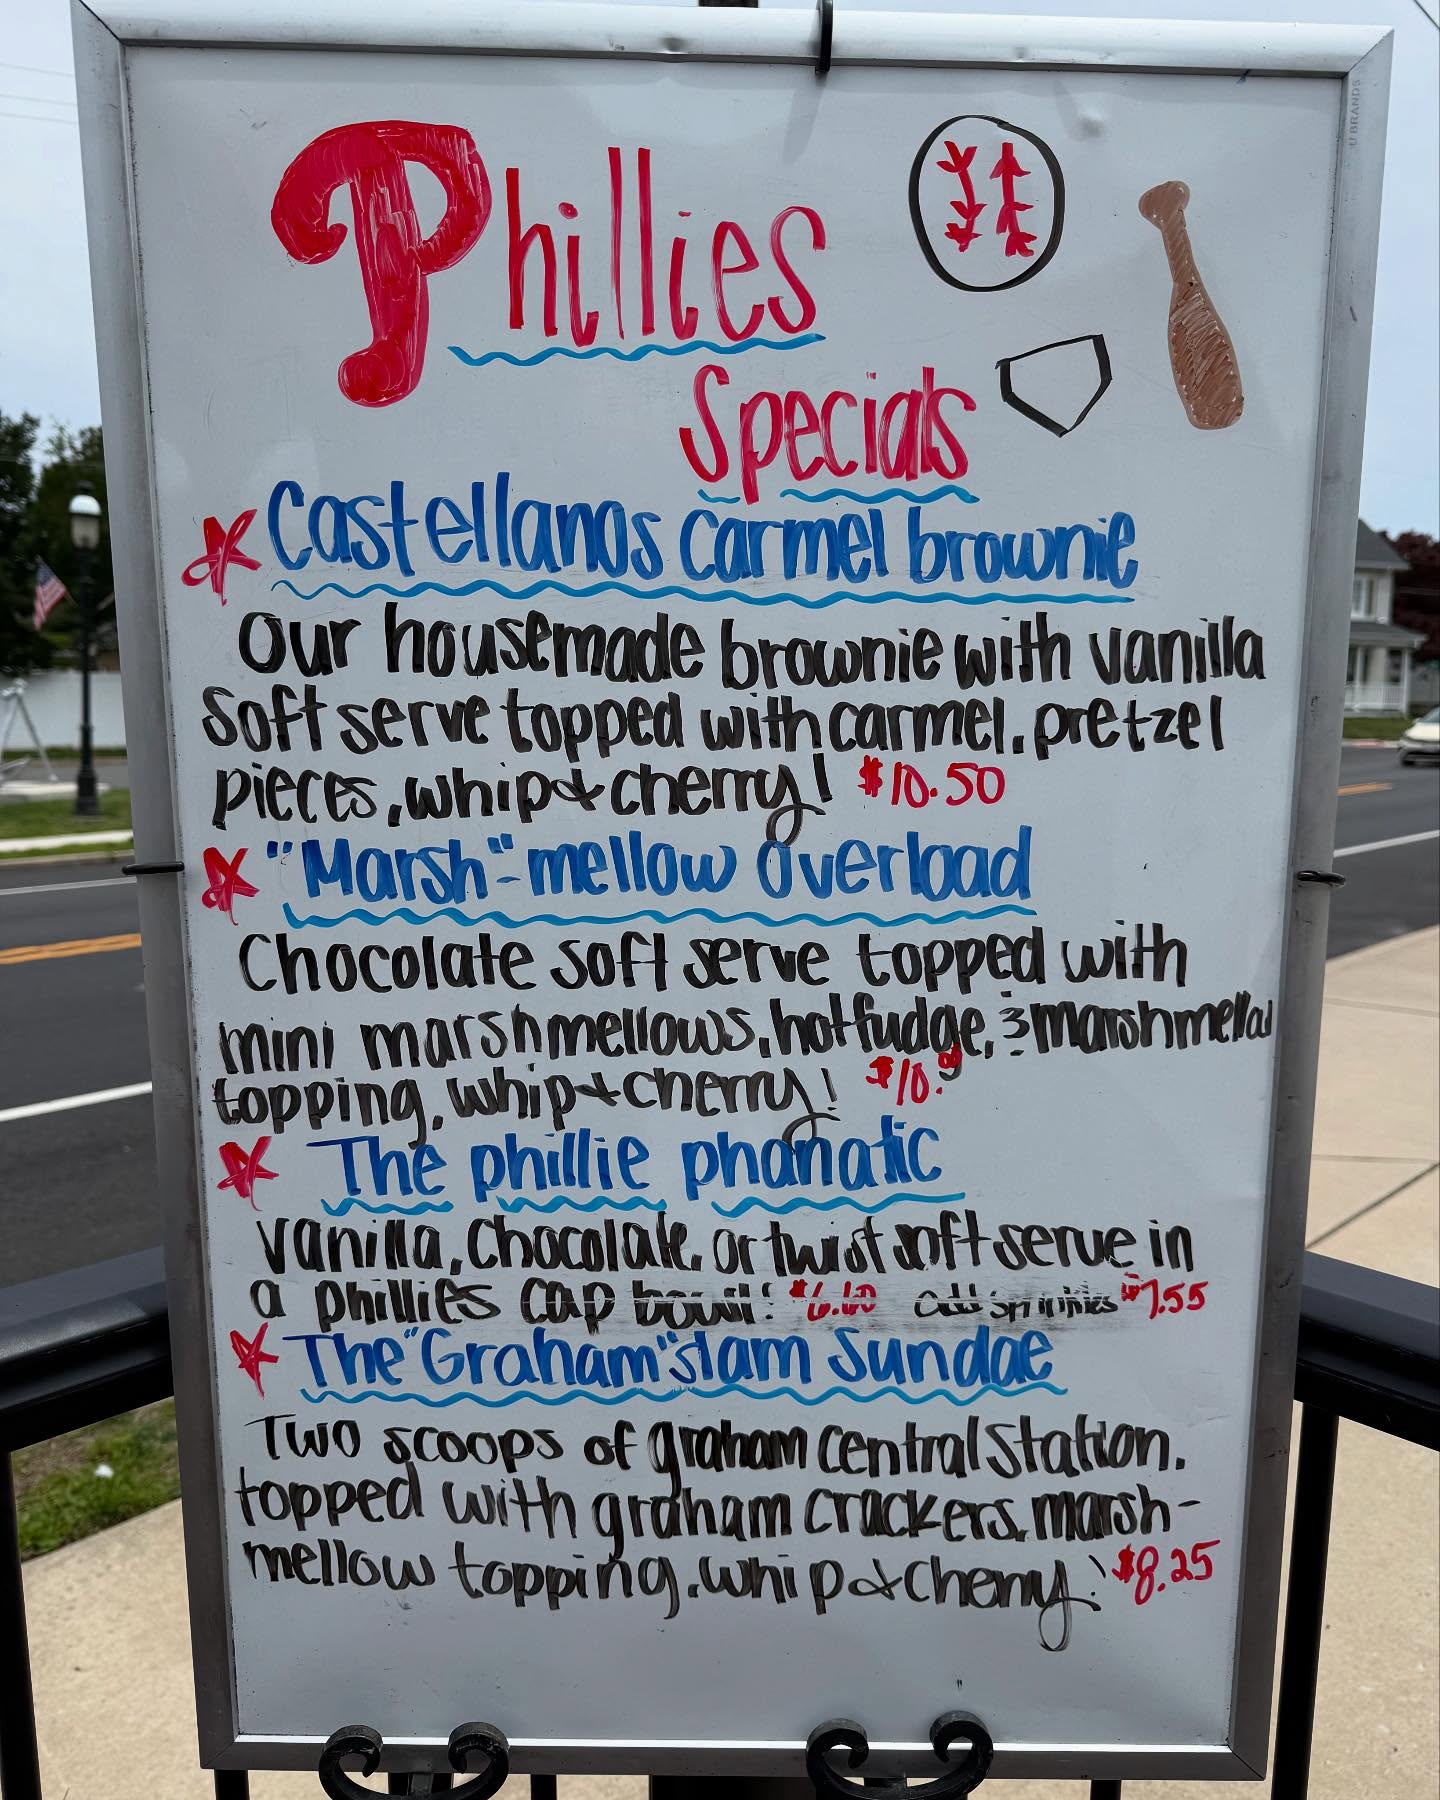 Phillies
Specials
Castellanos carmel brownie
Our housemade brownie with vanilla
Soft serve topped with carmel, pretzel
pieces, whip & cherry! $10.50
"Marsh"-mellow Overload
Chocolate soft serve topped with
mini marshmellows, hot fudge, & marshmellow
topping, whip & cherry! $10.
The phillie phanatic
Vanilla, Chocolate, or twist soft serve in
a phillies cap bowl! $6.60 add sprinkles $7.55
The "Graham" slam Sundae
Two scoops of graham central station,
topped with graham crackers, marsh-
mellow topping, whip & cherry! $8.25
U BRANDS